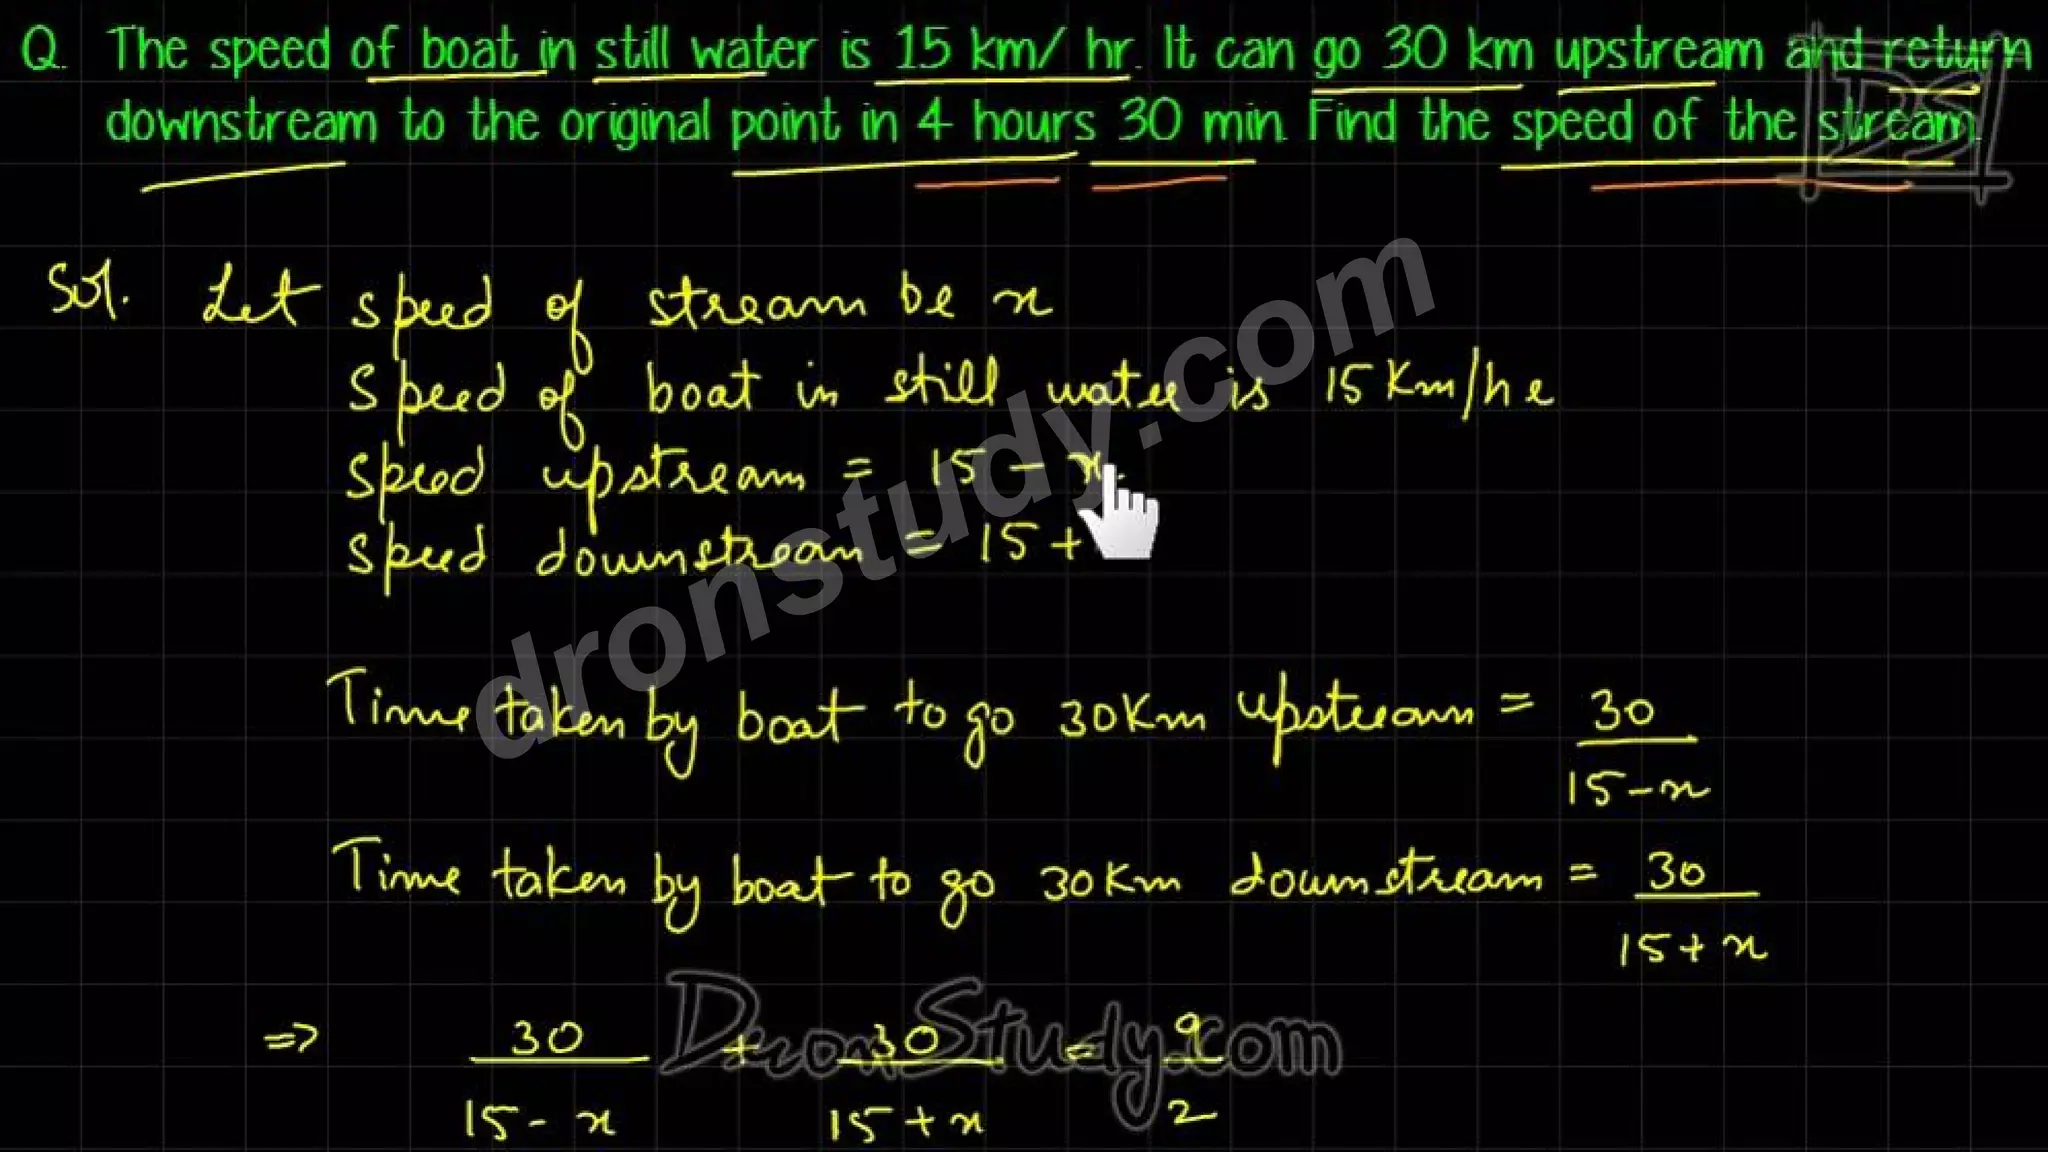 Q. The speed of boat in still water is 15 km/ hr. It can go 30 km upstream and return
downstream to the original point in 4 hours 30 min. Find the speed of the stream.
DS
Sol. Let speed of stream be x
Speed of boat in still water is 15 Km/hr
Speed upstream = 15 - x
Speed downstream = 15 +
dronstudy.com
Time taken by boat to go 30 Km upstream = 30/15-x
Time taken by boat to go 30 Km downstream = 30/15+x
=> 30/15-x + 30/15+x = 9/2
DronStudy.com